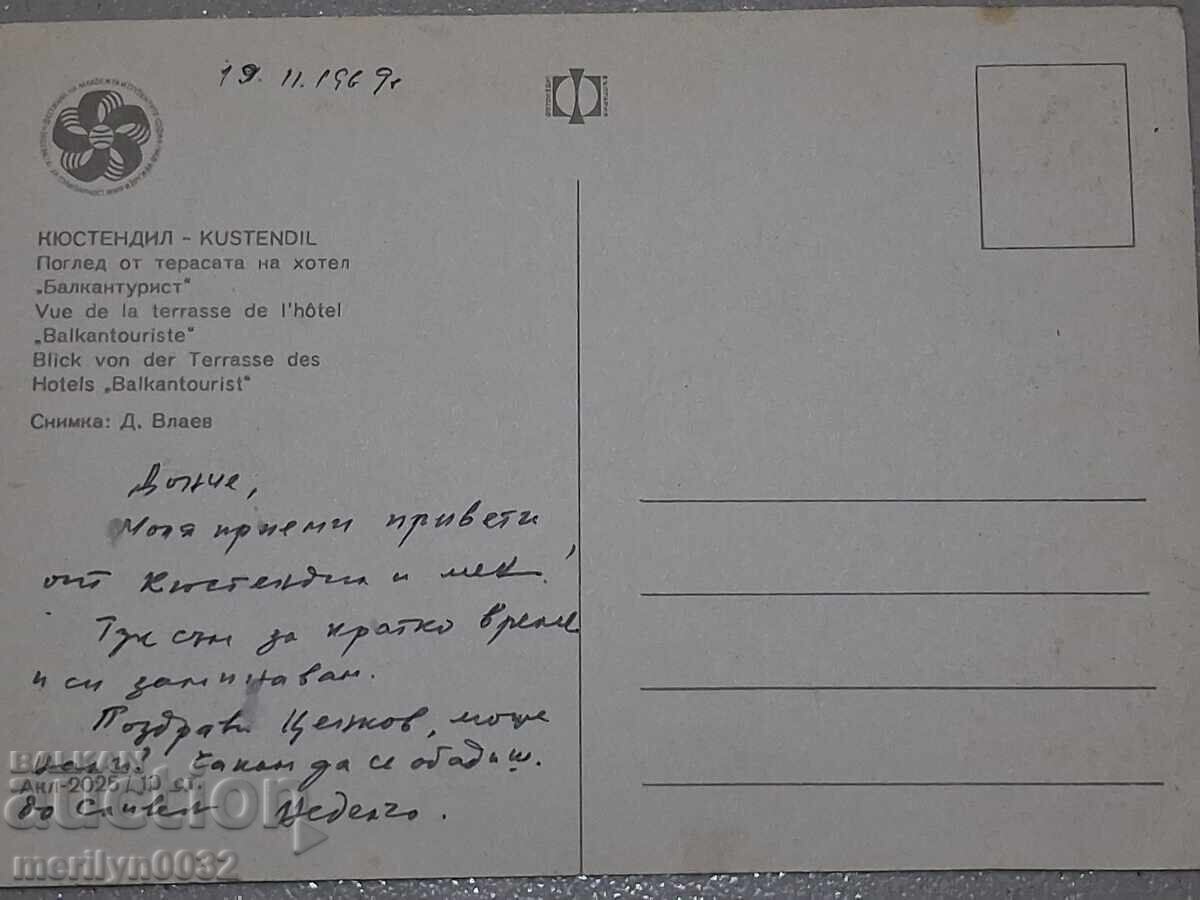 19.II.1969г
КЮСТЕНДИЛ - KUSTENDIL
Поглед от терасата на хотел
„Балкантурист"
Vue de la terrasse de l'hôtel
„Balkantouriste"
Blick von der Terrasse des
Hotels „Balkantourist"
Снимка: Д. Влаев
Моля приеми привети
от Кюстендил и мен!
Тук съм за кратко време
и си заминавам.
Поздрави Ценков, може
Чакам да се обадиш.
Акл-2025/10 ст.
до Сливен Неделчо.
BALKAN
auction
merilyn0032